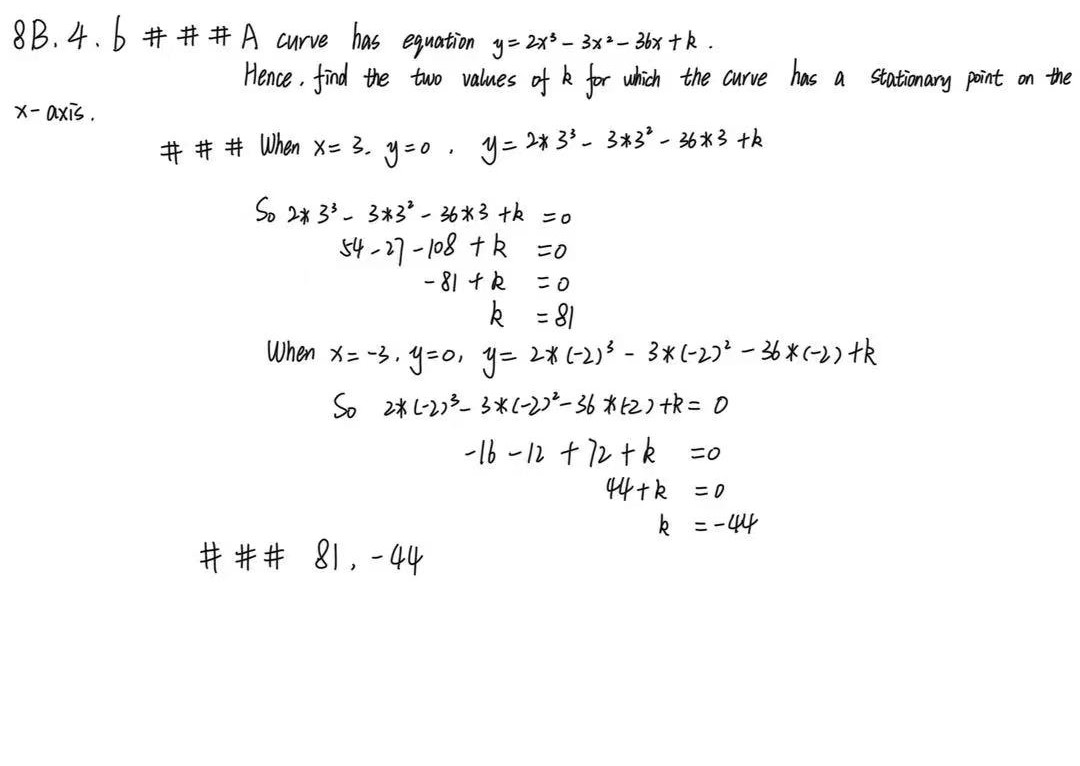 8B.4.b ### A curve has equation y = 2x³ - 3x² - 36x + k .
Hence, find the two values of k for which the curve has a stationary point on the
x-axis.
### When x = 3. y = 0 , y = 2*3³ - 3*3² - 36*3 + k
So 2*3³ - 3*3² - 36*3 + k = 0
54 - 27 - 108 + k = 0
-81 + k = 0
k = 81
When x = -3. y = 0, y = 2*(-2)³ - 3*(-2)² - 36*(-2) + k
So 2*(-2)³ - 3*(-2)² - 36*(-2) + k = 0
-16 - 12 + 72 + k = 0
44 + k = 0
k = -44
### 81, -44